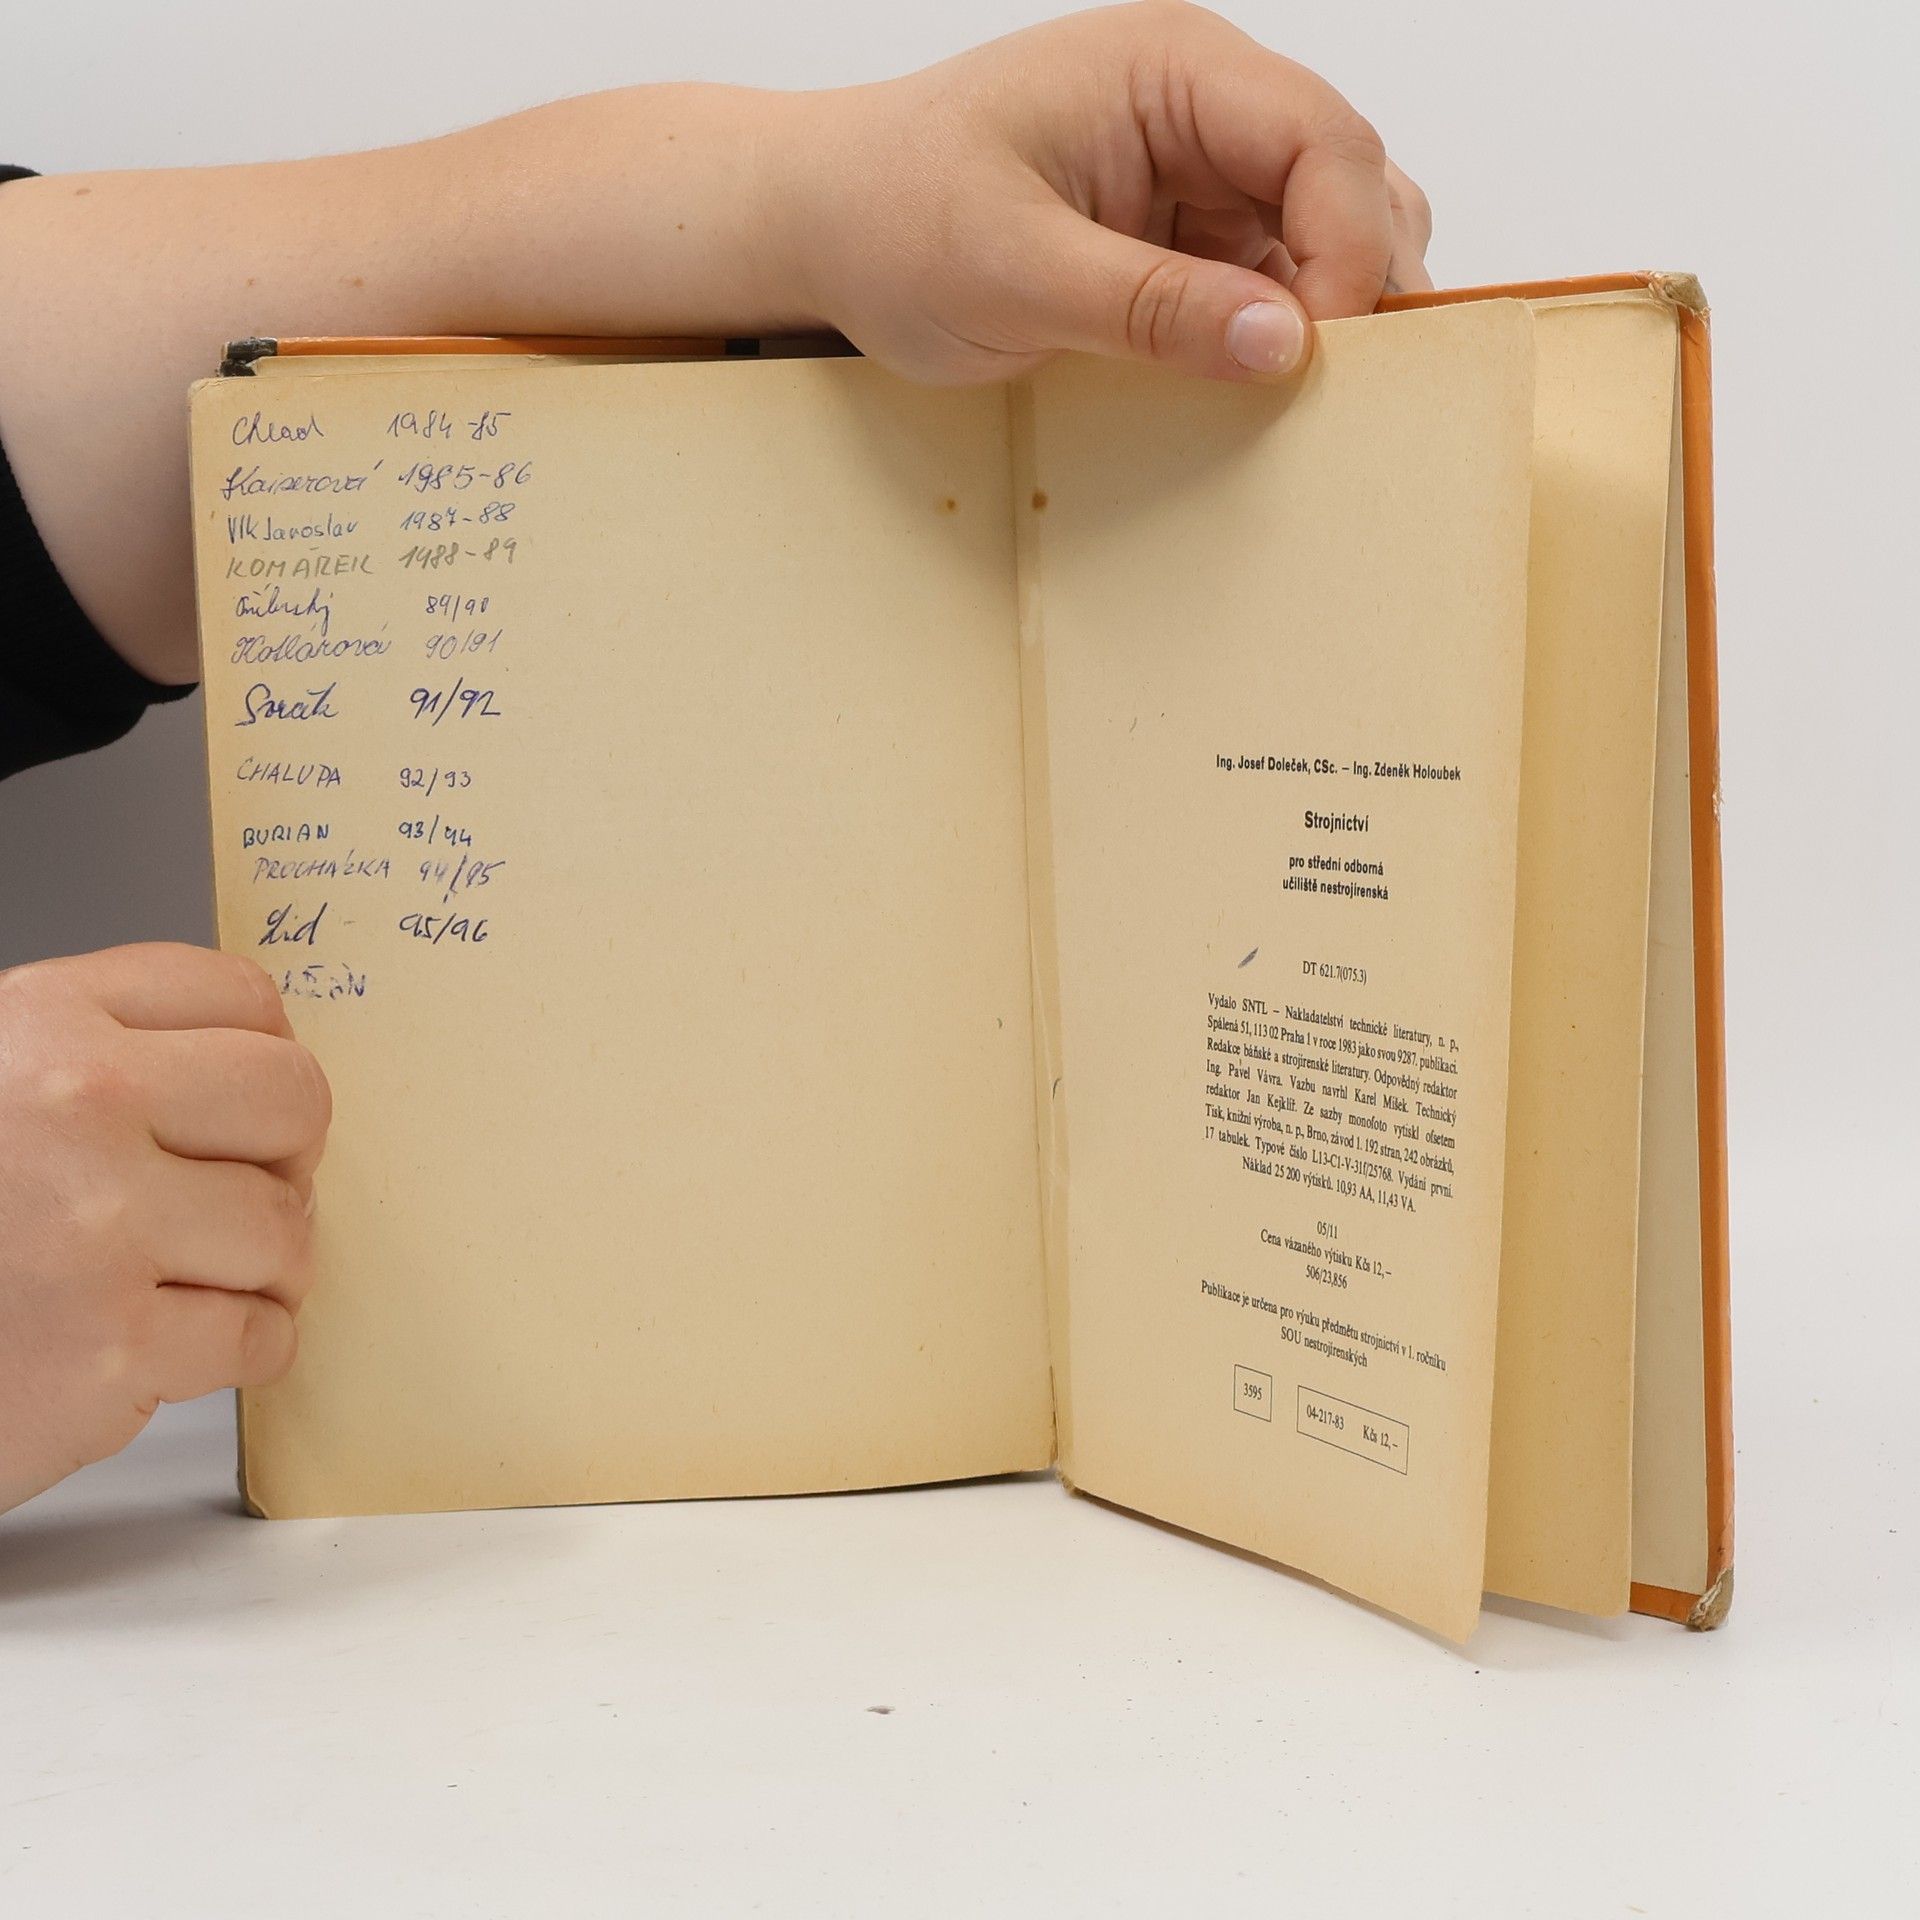 Chlad 1984-85
Kaiserová 1985-86
Vlk Jaroslav 1987-88
KOMÁREK 1988-89
89/90
Kotlárová 90/91
Svrák 91/92
CHALUPA 92/93
BURIAN 93/94
PROCHÁZKA 94/95
Lid - 95/96
Ing. Josef Doleček, CSc. – Ing. Zdeněk Holoubek
Strojnictví
pro střední odborná
učiliště nestrojírenská
DT 621.7(075.3)
Vydalo SNTL – Nakladatelství technické literatury, n. p.,
Spálená 51, 113 02 Praha 1 v roce 1983 jako svou 9287. publikaci.
Redakce báňské a strojírenské literatury. Odpovědný redaktor
Ing. Pavel Vávra. Vazbu navrhl Karel Míšek. Technický
redaktor Jan Kejklíř. Ze sazby monofoto vytiskl ofsetem
Tisk, knižní výroba, n. p., Brno, závod 1. 192 stran, 242 obrázků,
17 tabulek. Typové číslo L13-C1-V-31f/25768. Vydání první.
Náklad 25 200 výtisků. 10,93 AA, 11,43 VA.
05/11
Cena vázaného výtisku Kčs 12,–
506/23,856
Publikace je určena pro výuku předmětu strojnictví v 1. ročníku
SOU nestrojírenských
3595
04-217-83 Kčs 12,–